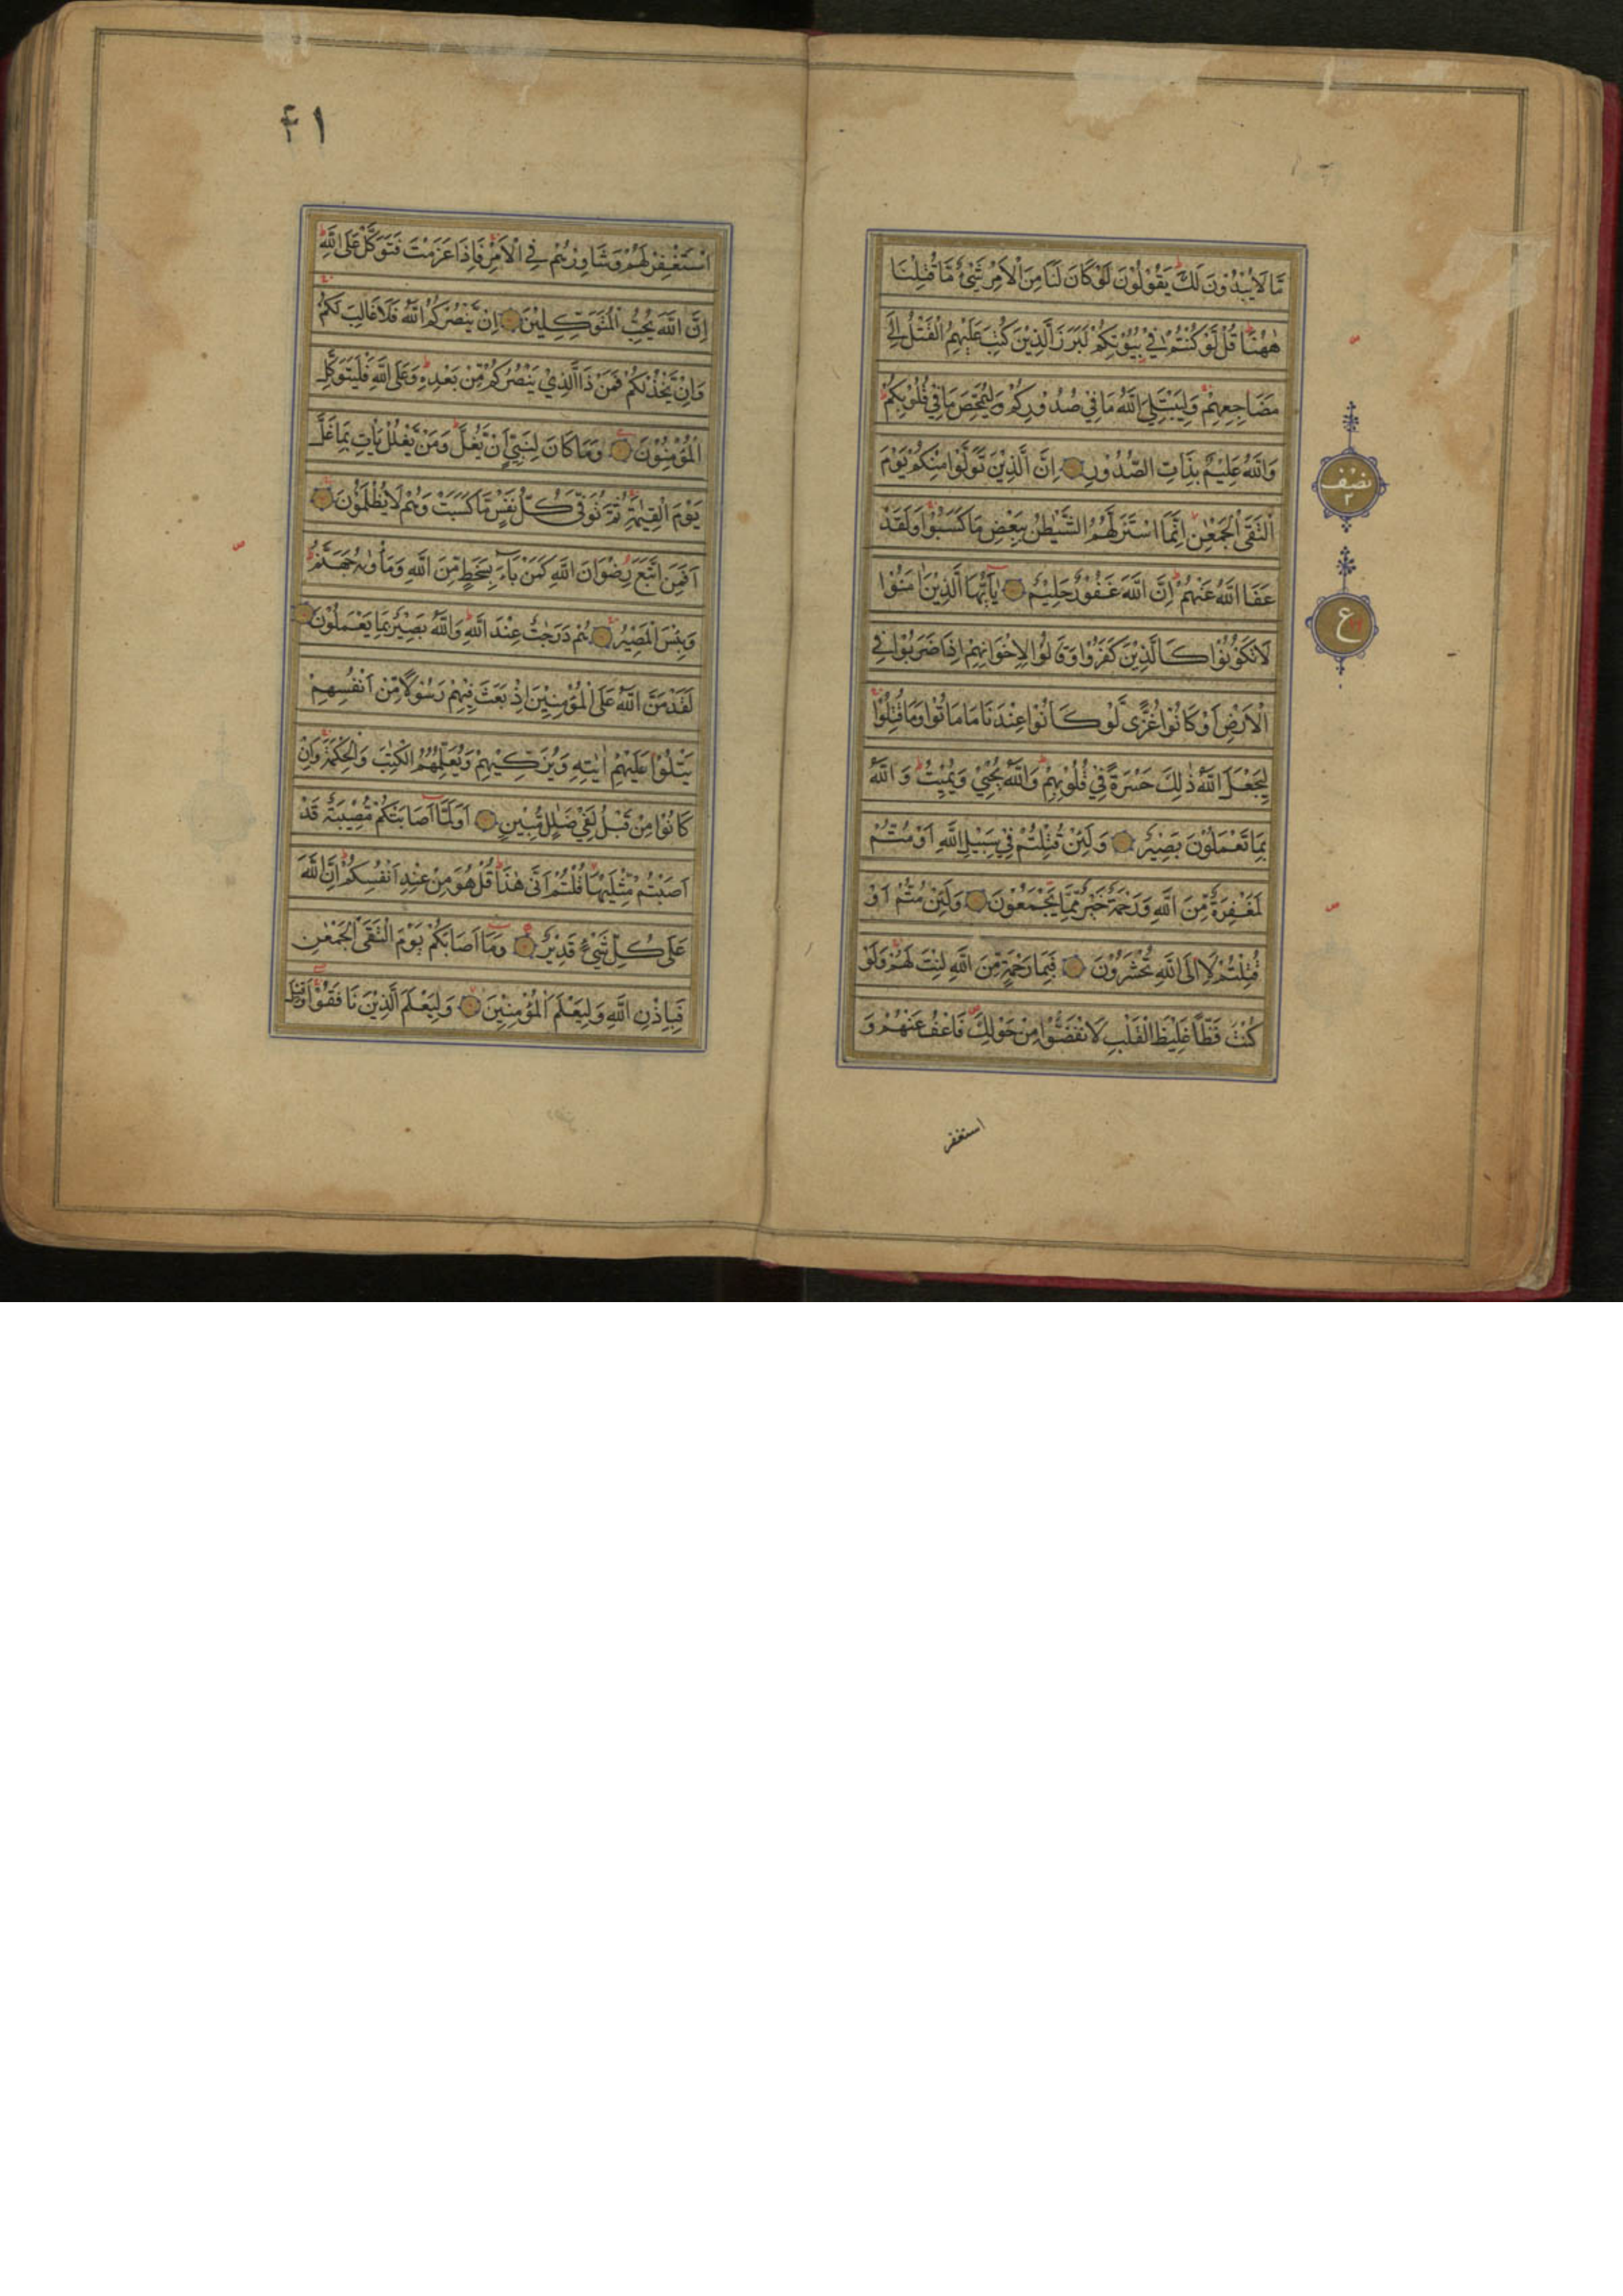 مَّا لَا يُبْدُوْنَ لَكَ ؕ يَقُوْلُوْنَ لَوْ كَانَ لَنَا مِنَ الْاَمْرِ شَيْءٌ مَّا قُتِلْنَا
هٰهُنَا ؕ قُلْ لَّوْ كُنْتُمْ فِيْ بُيُوْتِكُمْ لَبَرَزَ الَّذِيْنَ كُتِبَ عَلَيْهِمُ الْقَتْلُ اِلٰى
مَضَاجِعِهِمْ وَلِيَبْتَلِيَ اللّٰهُ مَا فِيْ صُدُوْرِكُمْ وَلِيُمَحِّصَ مَا فِيْ قُلُوْبِكُمْ
وَاللّٰهُ عَلِيْمٌ بِذَاتِ الصُّدُوْرِ اِنَّ الَّذِيْنَ تَوَلَّوْا مِنْكُمْ يَوْمَ
الْتَقَى الْجَمْعٰنِ اِنَّمَا اسْتَزَلَّهُمُ الشَّيْطٰنُ بِبَعْضِ مَا كَسَبُوْا وَلَقَدْ
عَفَا اللّٰهُ عَنْهُمْ ؕ اِنَّ اللّٰهَ غَفُوْرٌ حَلِيْمٌ يٰاَيُّهَا الَّذِيْنَ اٰمَنُوْا
لَا تَكُوْنُوْا كَالَّذِيْنَ كَفَرُوْا وَقَالُوْا لِاِخْوَانِهِمْ اِذَا ضَرَبُوْا فِي
الْاَرْضِ اَوْ كَانُوْا غُزًّى لَّوْ كَانُوْا عِنْدَنَا مَا مَاتُوْا وَمَا قُتِلُوْا
لِيَجْعَلَ اللّٰهُ ذٰلِكَ حَسْرَةً فِيْ قُلُوْبِهِمْ ؕ وَاللّٰهُ يُحْيٖ وَيُمِيْتُ ؕ وَاللّٰهُ
بِمَا تَعْمَلُوْنَ بَصِيْرٌ وَلَئِنْ قُتِلْتُمْ فِيْ سَبِيْلِ اللّٰهِ اَوْ مُتُّمْ
لَمَغْفِرَةٌ مِّنَ اللّٰهِ وَرَحْمَةٌ خَيْرٌ مِّمَّا يَجْمَعُوْنَ وَلَئِنْ مُّتُّمْ اَوْ
قُتِلْتُمْ لَاِالَى اللّٰهِ تُحْشَرُوْنَ فَبِمَا رَحْمَةٍ مِّنَ اللّٰهِ لِنْتَ لَهُمْ وَلَوْ
كُنْتَ فَظًّا غَلِيْظَ الْقَلْبِ لَانْفَضُّوْا مِنْ حَوْلِكَ فَاعْفُ عَنْهُمْ وَ
استغفر
نصف
٢
ع
٤١
اسْتَغْفِرْ لَهُمْ وَشَاوِرْهُمْ فِي الْاَمْرِ فَاِذَا عَزَمْتَ فَتَوَكَّلْ عَلَى اللّٰهِ ؕ
اِنَّ اللّٰهَ يُحِبُّ الْمُتَوَكِّلِيْنَ اِنْ يَّنْصُرْكُمُ اللّٰهُ فَلَا غَالِبَ لَكُمْ
وَاِنْ يَّخْذُلْكُمْ فَمَنْ ذَا الَّذِيْ يَنْصُرُكُمْ مِّنْ بَعْدِهٖ ؕ وَعَلَى اللّٰهِ فَلْيَتَوَكَّلِ
الْمُؤْمِنُوْنَ وَمَا كَانَ لِنَبِيٍّ اَنْ يَّغُلَّ ؕ وَمَنْ يَّغْلُلْ يَاْتِ بِمَا غَلَّ
يَوْمَ الْقِيٰمَةِ ثُمَّ تُوَفّٰى كُلُّ نَفْسٍ مَّا كَسَبَتْ وَهُمْ لَا يُظْلَمُوْنَ
اَفَمَنِ اتَّبَعَ رِضْوَانَ اللّٰهِ كَمَنْ بَآءَ بِسَخَطٍ مِّنَ اللّٰهِ وَمَاْوٰىهُ جَهَنَّمُ ؕ
وَبِئْسَ الْمَصِيْرُ هُمْ دَرَجٰتٌ عِنْدَ اللّٰهِ ؕ وَاللّٰهُ بَصِيْرٌ بِمَا يَعْمَلُوْنَ
لَقَدْ مَنَّ اللّٰهُ عَلَى الْمُؤْمِنِيْنَ اِذْ بَعَثَ فِيْهِمْ رَسُوْلًا مِّنْ اَنْفُسِهِمْ
يَتْلُوْا عَلَيْهِمْ اٰيٰتِهٖ وَيُزَكِّيْهِمْ وَيُعَلِّمُهُمُ الْكِتٰبَ وَالْحِكْمَةَ وَاِنْ
كَانُوْا مِنْ قَبْلُ لَفِيْ ضَلٰلٍ مُّبِيْنٍ اَوَلَمَّا اَصَابَتْكُمْ مُّصِيْبَةٌ قَدْ
اَصَبْتُمْ مِّثْلَيْهَا قُلْتُمْ اَنّٰى هٰذَا ؕ قُلْ هُوَ مِنْ عِنْدِ اَنْفُسِكُمْ ؕ اِنَّ اللّٰهَ
عَلٰى كُلِّ شَيْءٍ قَدِيْرٌ وَمَا اَصَابَكُمْ يَوْمَ الْتَقَى الْجَمْعٰنِ
فَبِاِذْنِ اللّٰهِ وَلِيَعْلَمَ الْمُؤْمِنِيْنَ وَلِيَعْلَمَ الَّذِيْنَ نَافَقُوْا وَقِيْلَ